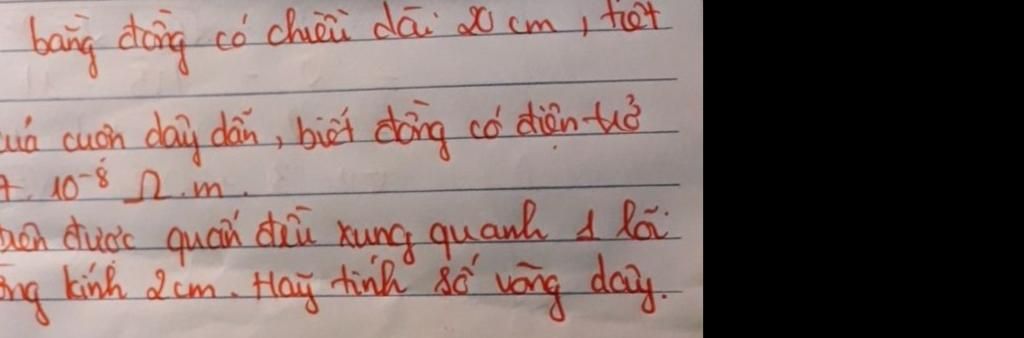 bằng đồng có chiều dài 20 cm, tiết
cuộn dây dẫn, biết đồng có điện trở
10⁻⁸ Ω.m.
được quấn đều xung quanh 1 lõi
kính 2cm. Hãy tính số vòng dây.